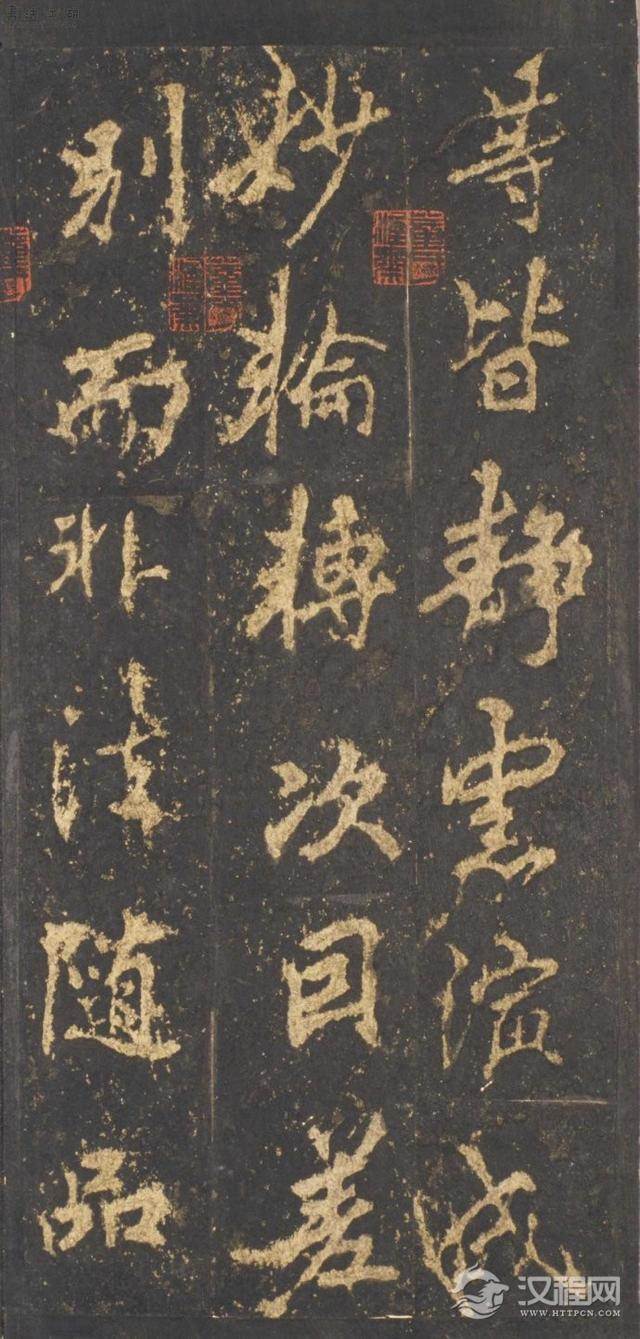 等皆靜惠演成
妙輪轉次因差
別而非法隨品
汉程网
WWW.HTTPCN.COM